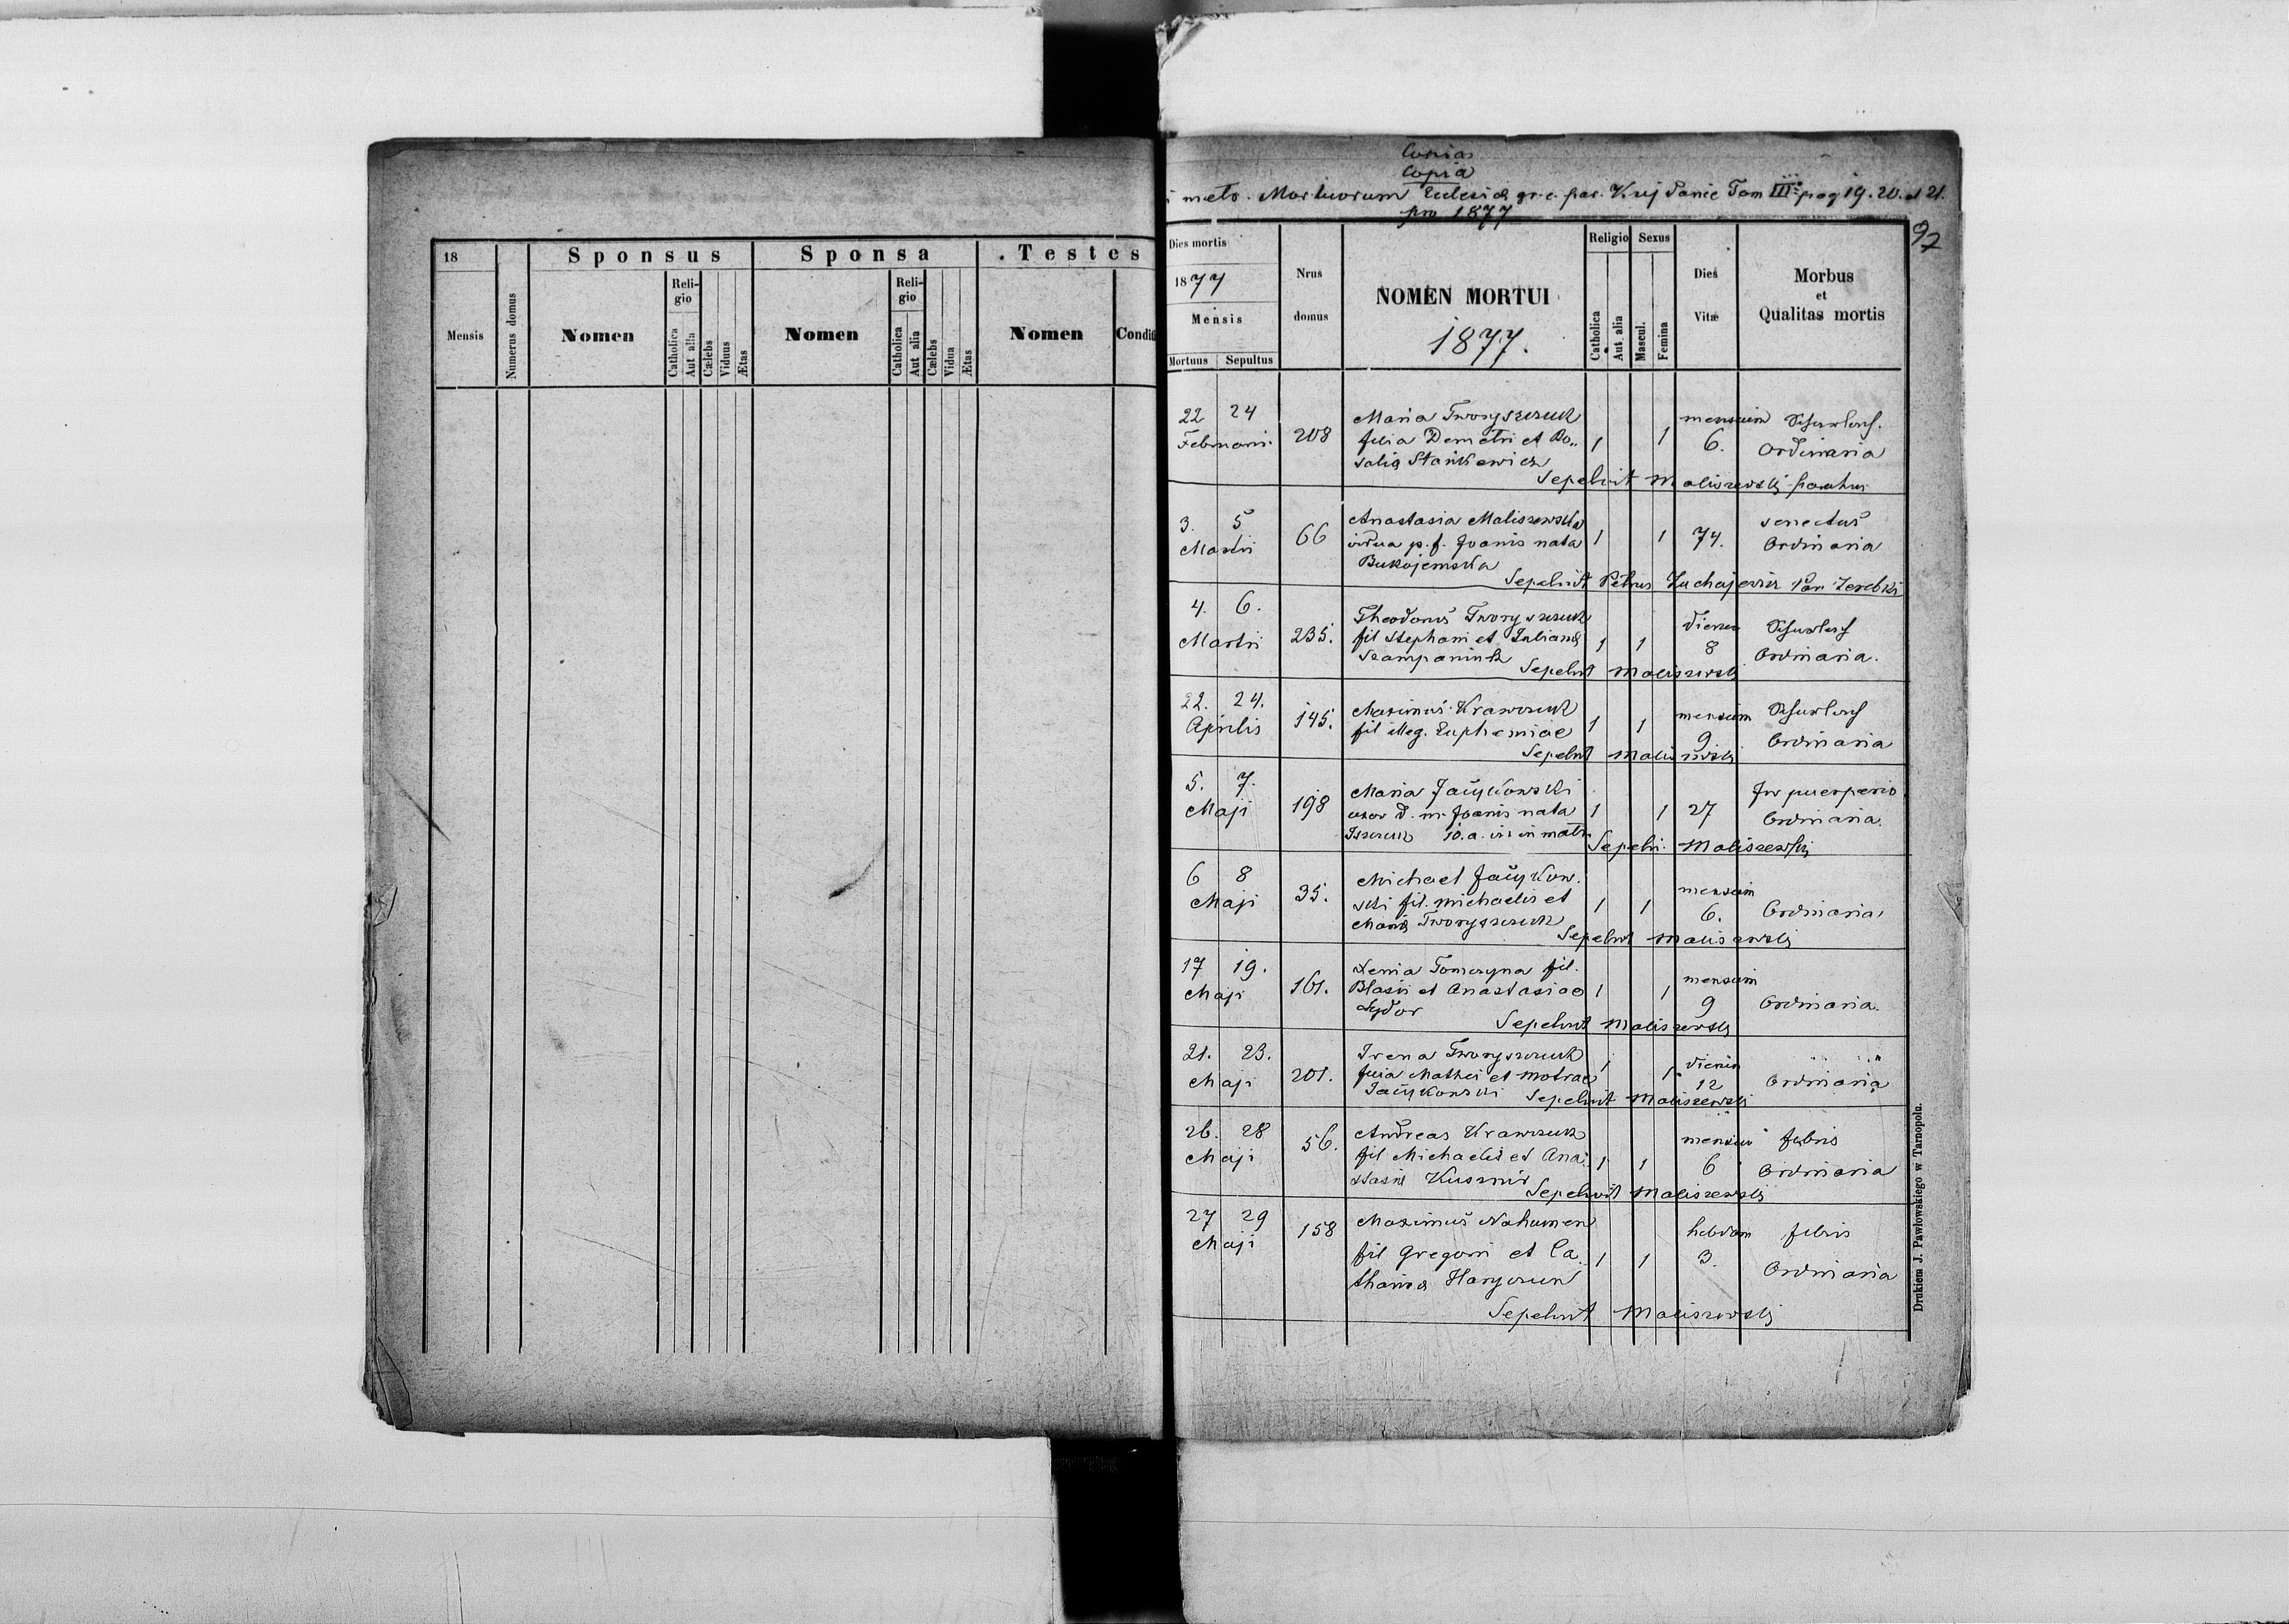 18
Mensis
Numerus domus
Sponsus
Nomen
Reli-
gio
Catholica
Aut alia
Cælebs
Viduus
Ætas
Sponsa
Nomen
Reli-
gio
Catholica
Aut alia
Cælebs
Vidua
Ætas
Testes
Nomen
Condit
Copia
Copia
metr. Mortuorum Ecclesiæ gr. c. par. Tom III pag 19. 20. et 21.
pro 1877
97
Dies mortis
1877
Mensis
Mortuus Sepultus
Nrus
domus
NOMEN MORTUI
1877.
Religio
Catholica
Aut alia
Sexus
Mascul.
Femina
Dies
Vitæ
Morbus
et
Qualitas mortis
22 24 Maria Tworyszczuk mensium
Februari 208 filia Demetri et Ro- 1 1 6. Ordinaria
salia Stankewicz
Sepelivit Maliszewski parochus
3. 5 Anastasia Maliszewska senectus
Martii 66 vidua p. f. Joanis nata 1 1 74. Ordinaria
Bukojemska
Sepelivit Petrus
4. 6. Theodorus Tworyszczuk dierum
Martii 235. fil Stephani et Julianæ 1 1 8 Ordinaria.
Sepelivit Maliszewski
22. 24. Maximus Krawczuk mensium
Aprilis 145. fil illeg. Euphemiae 1 1 9 Ordinaria
Sepelivit Maliszewski
5. 7. Maria Jaćykowski In puerperio
Maji 198 uxor d. m. Joanis nata 1 1 27 Ordinaria.
10. a. vi: in matr.
Sepeli. Maliszewski
6 8 Michael Jaćykow- mensium
Maji 35. ski fil. Michaelis et 1 1 6. Ordinaria
Mariæ Tworyszczuk
Sepelivit Maliszewski
17 19. Xenia Tomczyna fil. mensium
Maji 161. Blasii et Anastasiae 1 1 9 Ordinaria.
Sydor
Sepelivit Maliszewski
21. 23. Irena Tworyszczuk dierum
Maji 201. filia Mathei et Motrae 1 1 12 Ordinaria
Jaćykowski Sepelivit Maliszewski
26. 28 Andreas Krawczuk mensium febris
Maji 56. fil Michaelis et Ana- 1 1 6 Ordinaria
stasiæ Kusznir
Sepelivit Maliszewski
27 29 Maximus Nahumen hebdom febris
Maji 158 fil Gregorii et Ca- 1 1 3. Ordinaria
tharinæ
Sepelivit Maliszewski
Drukiem J. Pawłowskiego w Tarnopolu.